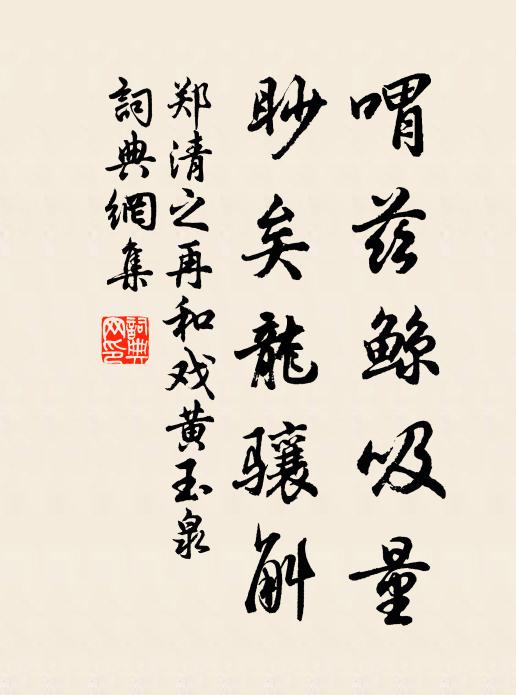 喟兹鲸吸量
眇矣龍骧斛
郑清之再和戏黄玉泉
詞典網集
詞典网印